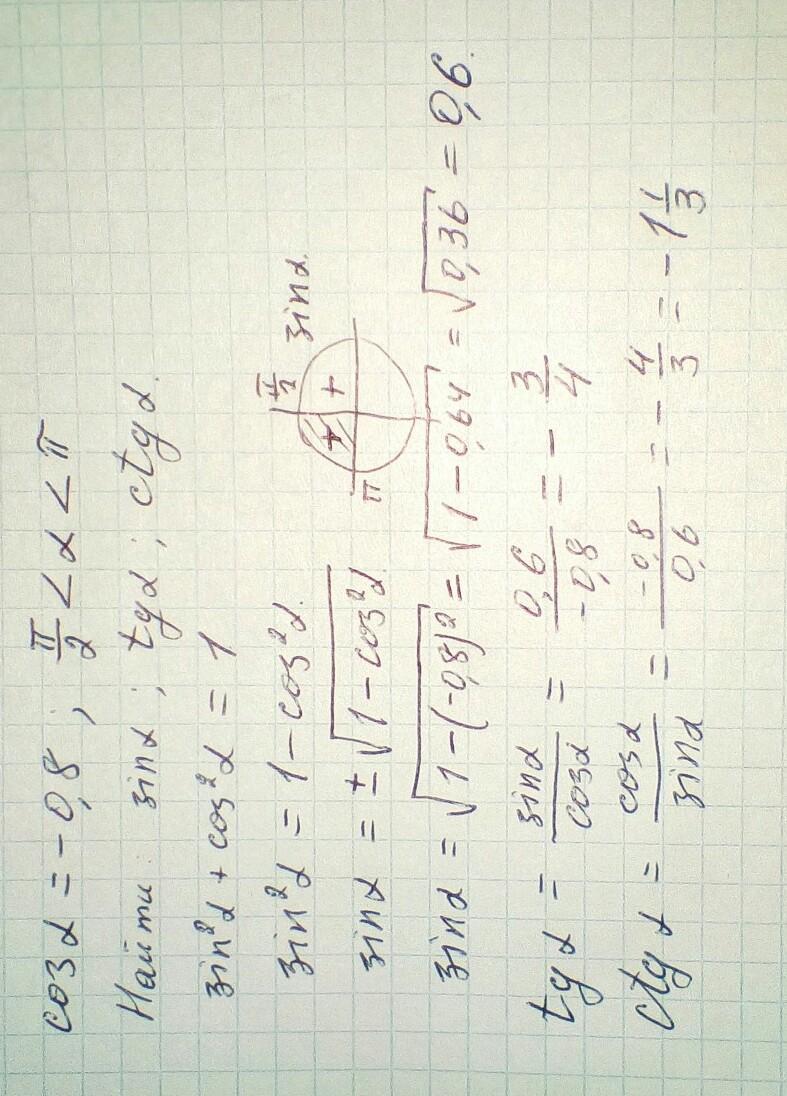 cosα = -0,8 ; π/2 < α < π
Найти: sinα ; tgα ; ctgα.
sin²α + cos²α = 1
sin²α = 1 - cos²α
sinα = ±√(1 - cos²α)
π/2 sinα.
+ +
π
sinα = √(1-(-0,8)²) = √(1-0,64) = √0,36 = 0,6.
tgα = sinα/cosα = 0,6/-0,8 = -3/4
ctgα = cosα/sinα = -0,8/0,6 = -4/3 = -1 1/3